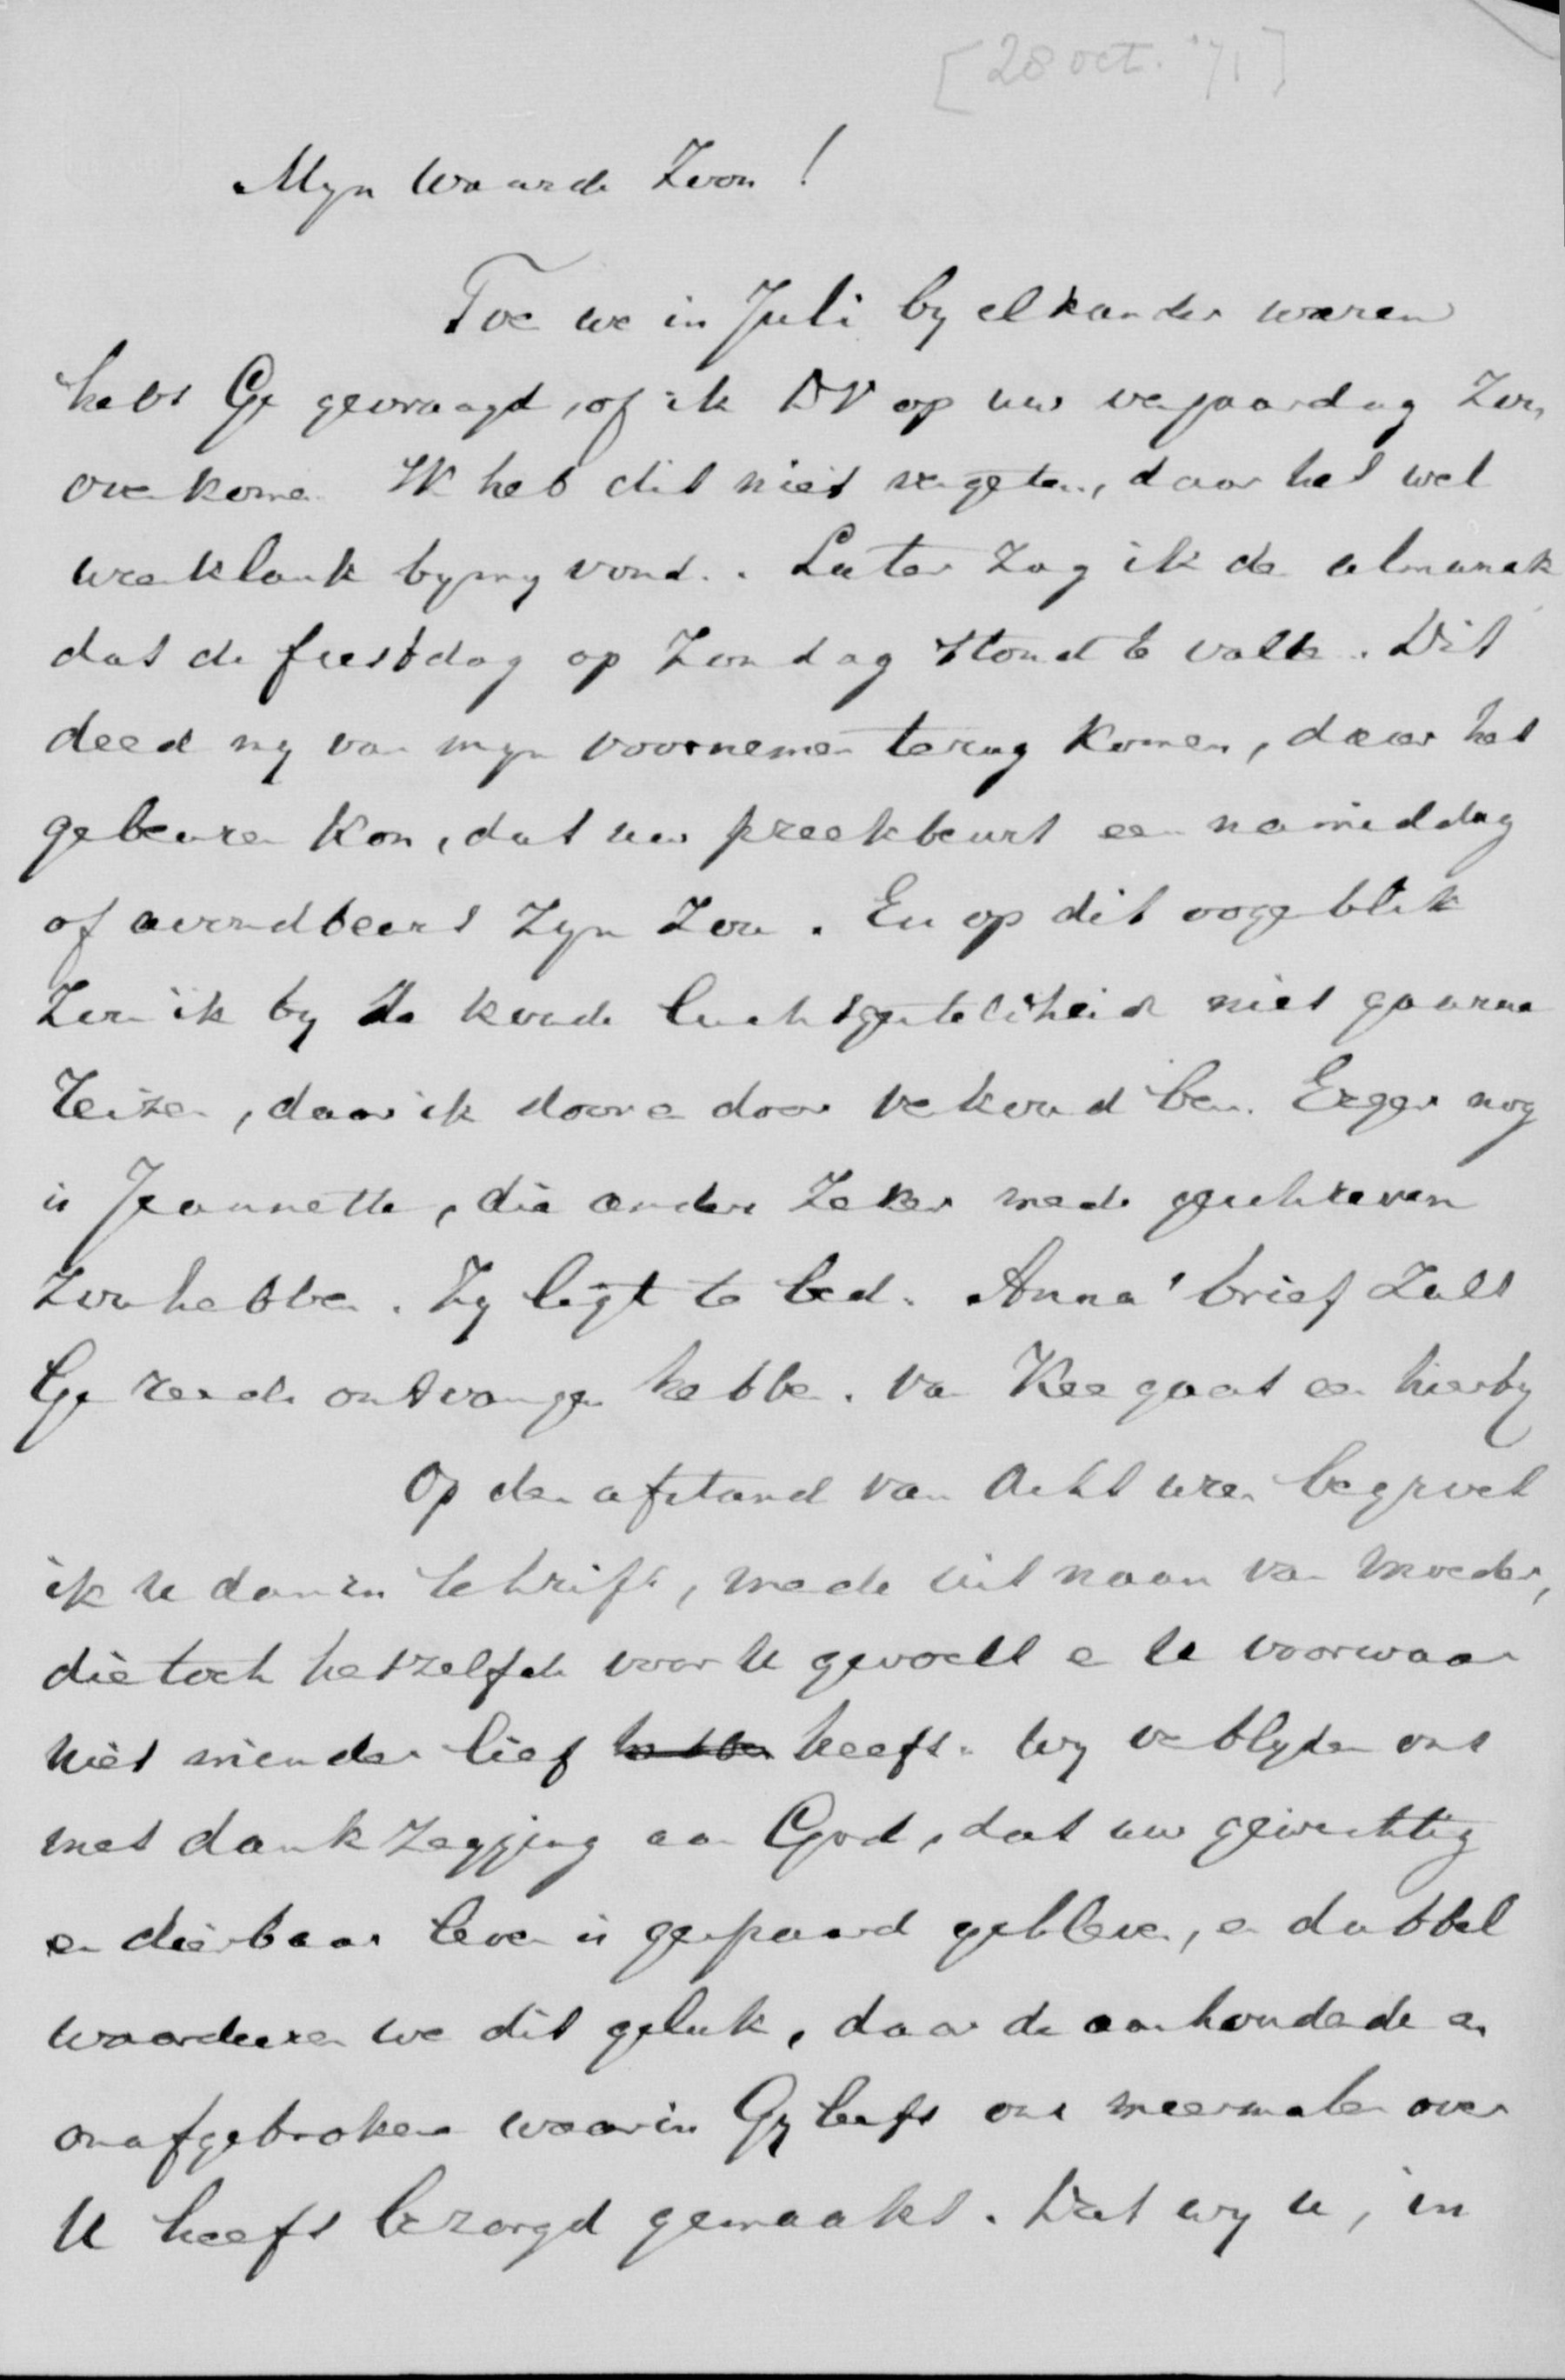 [28 oct. '71]
Myn waarde Zoon!
Toe we in Juli by elkander waren
hebt Ge gevraagd, of ik DV op uw verjaardag zou
overkomen Ik heb dit niet vergeten, daar het wel
weerklank by my vond.. Later zag ik de almanak
dat de feestdag op Zondag stond te vallen. Dit
deed my van myn voornemen terug komen, daar het
gebeuren kon, dat uw preekbeurt een namiddag
of avondbeurt zyn zou. En op dit oogenblik
zou ik by de koude luchtgesteldheid niet gaarne
reizen, daar ik door en door verkoud ben. Erger nog
is Jeannette, die anders zeker mede geschreven
zou hebben. Zy ligt te bed. Anna's brief zult
Ge reeds ontvangen hebben. Van Kee gaat een hierby
Op den afstand van acht uren begroet
ik u dan in schrift, mede uit naam van Moeder,
die toch hetzelfde voor U gevoelt en U voorwaar
niet minder lief hebben heeft. Wy verblyden ons
met dankzegging aan God, dat uw gewichtig
en dierbaar leven is gespaard gebleven, en dubbel
waarderen we dit geluk, daar de aanhoudende en
onafgebroken waarin Gy leeft ons meermalen over
U heeft bezorgd gemaakt. Dat wy U, in